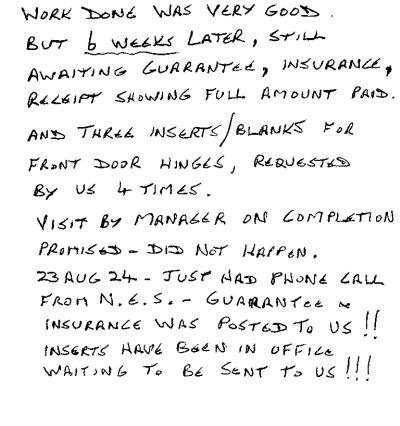 WORK DONE WAS VERY GOOD.
BUT 6 WEEKS LATER, STILL
AWAITING GUARANTEE, INSURANCE,
RECEIPT SHOWING FULL AMOUNT PAID.
AND THREE INSERTS/BLANKS FOR
FRONT DOOR HINGES, REQUESTED
BY US 4 TIMES.
VISIT BY MANAGER ON COMPLETION
PROMISED - DID NOT HAPPEN.
23 AUG 24 - JUST HAD PHONE CALL
FROM N.E.S. - GUARANTEE &
INSURANCE WAS POSTED TO US !!
INSERTS HAVE BEEN IN OFFICE
WAITING TO BE SENT TO US !!!